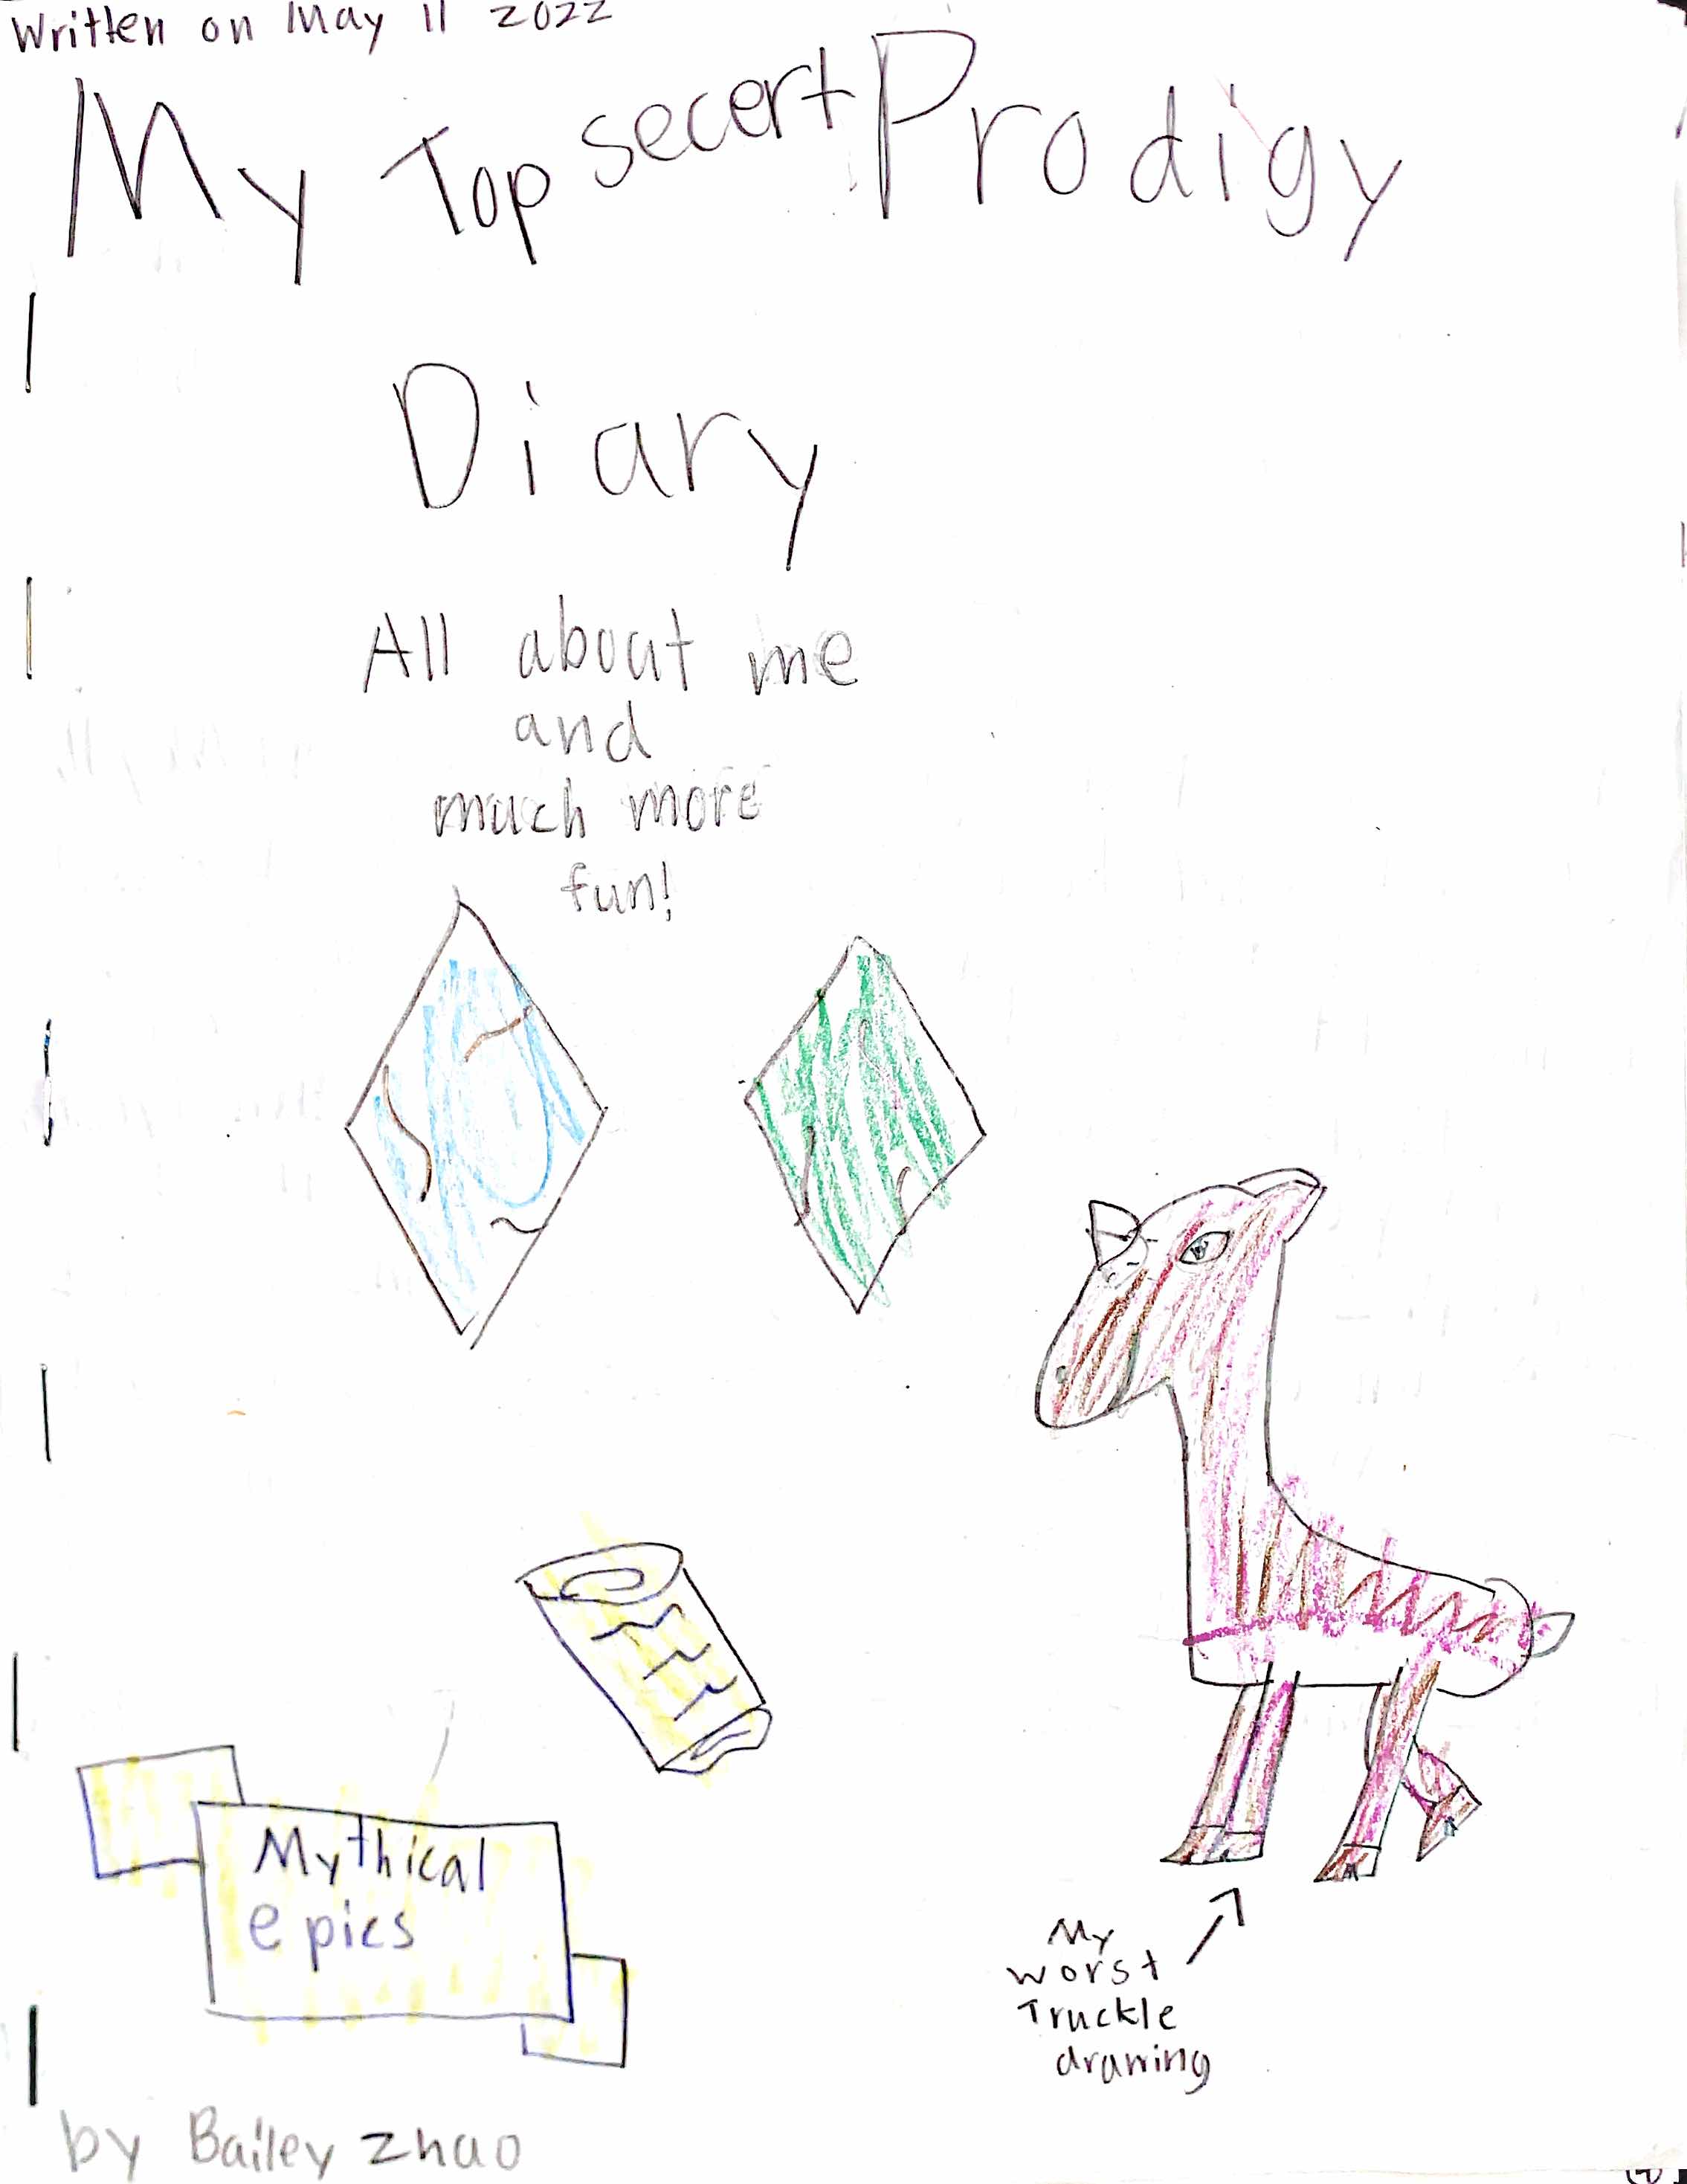 Written on May 11 2022
My Top secert Prodigy
Diary
All about me
and
much more
fun!
Mythical
epics
My
worst
Truckle
drawing
by Bailey Zhao